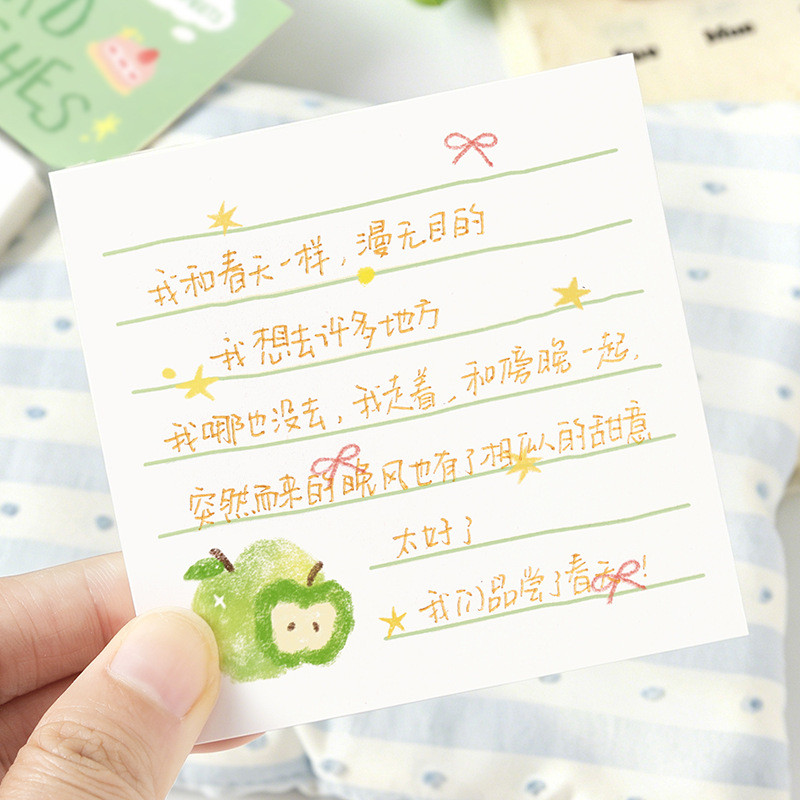 我和春天一样,漫无目的
我想去许多地方
我哪也没去,我走着,和傍晚一起,
突然而来的晚风也有了相似的甜意
太好了
我们品尝了春天!